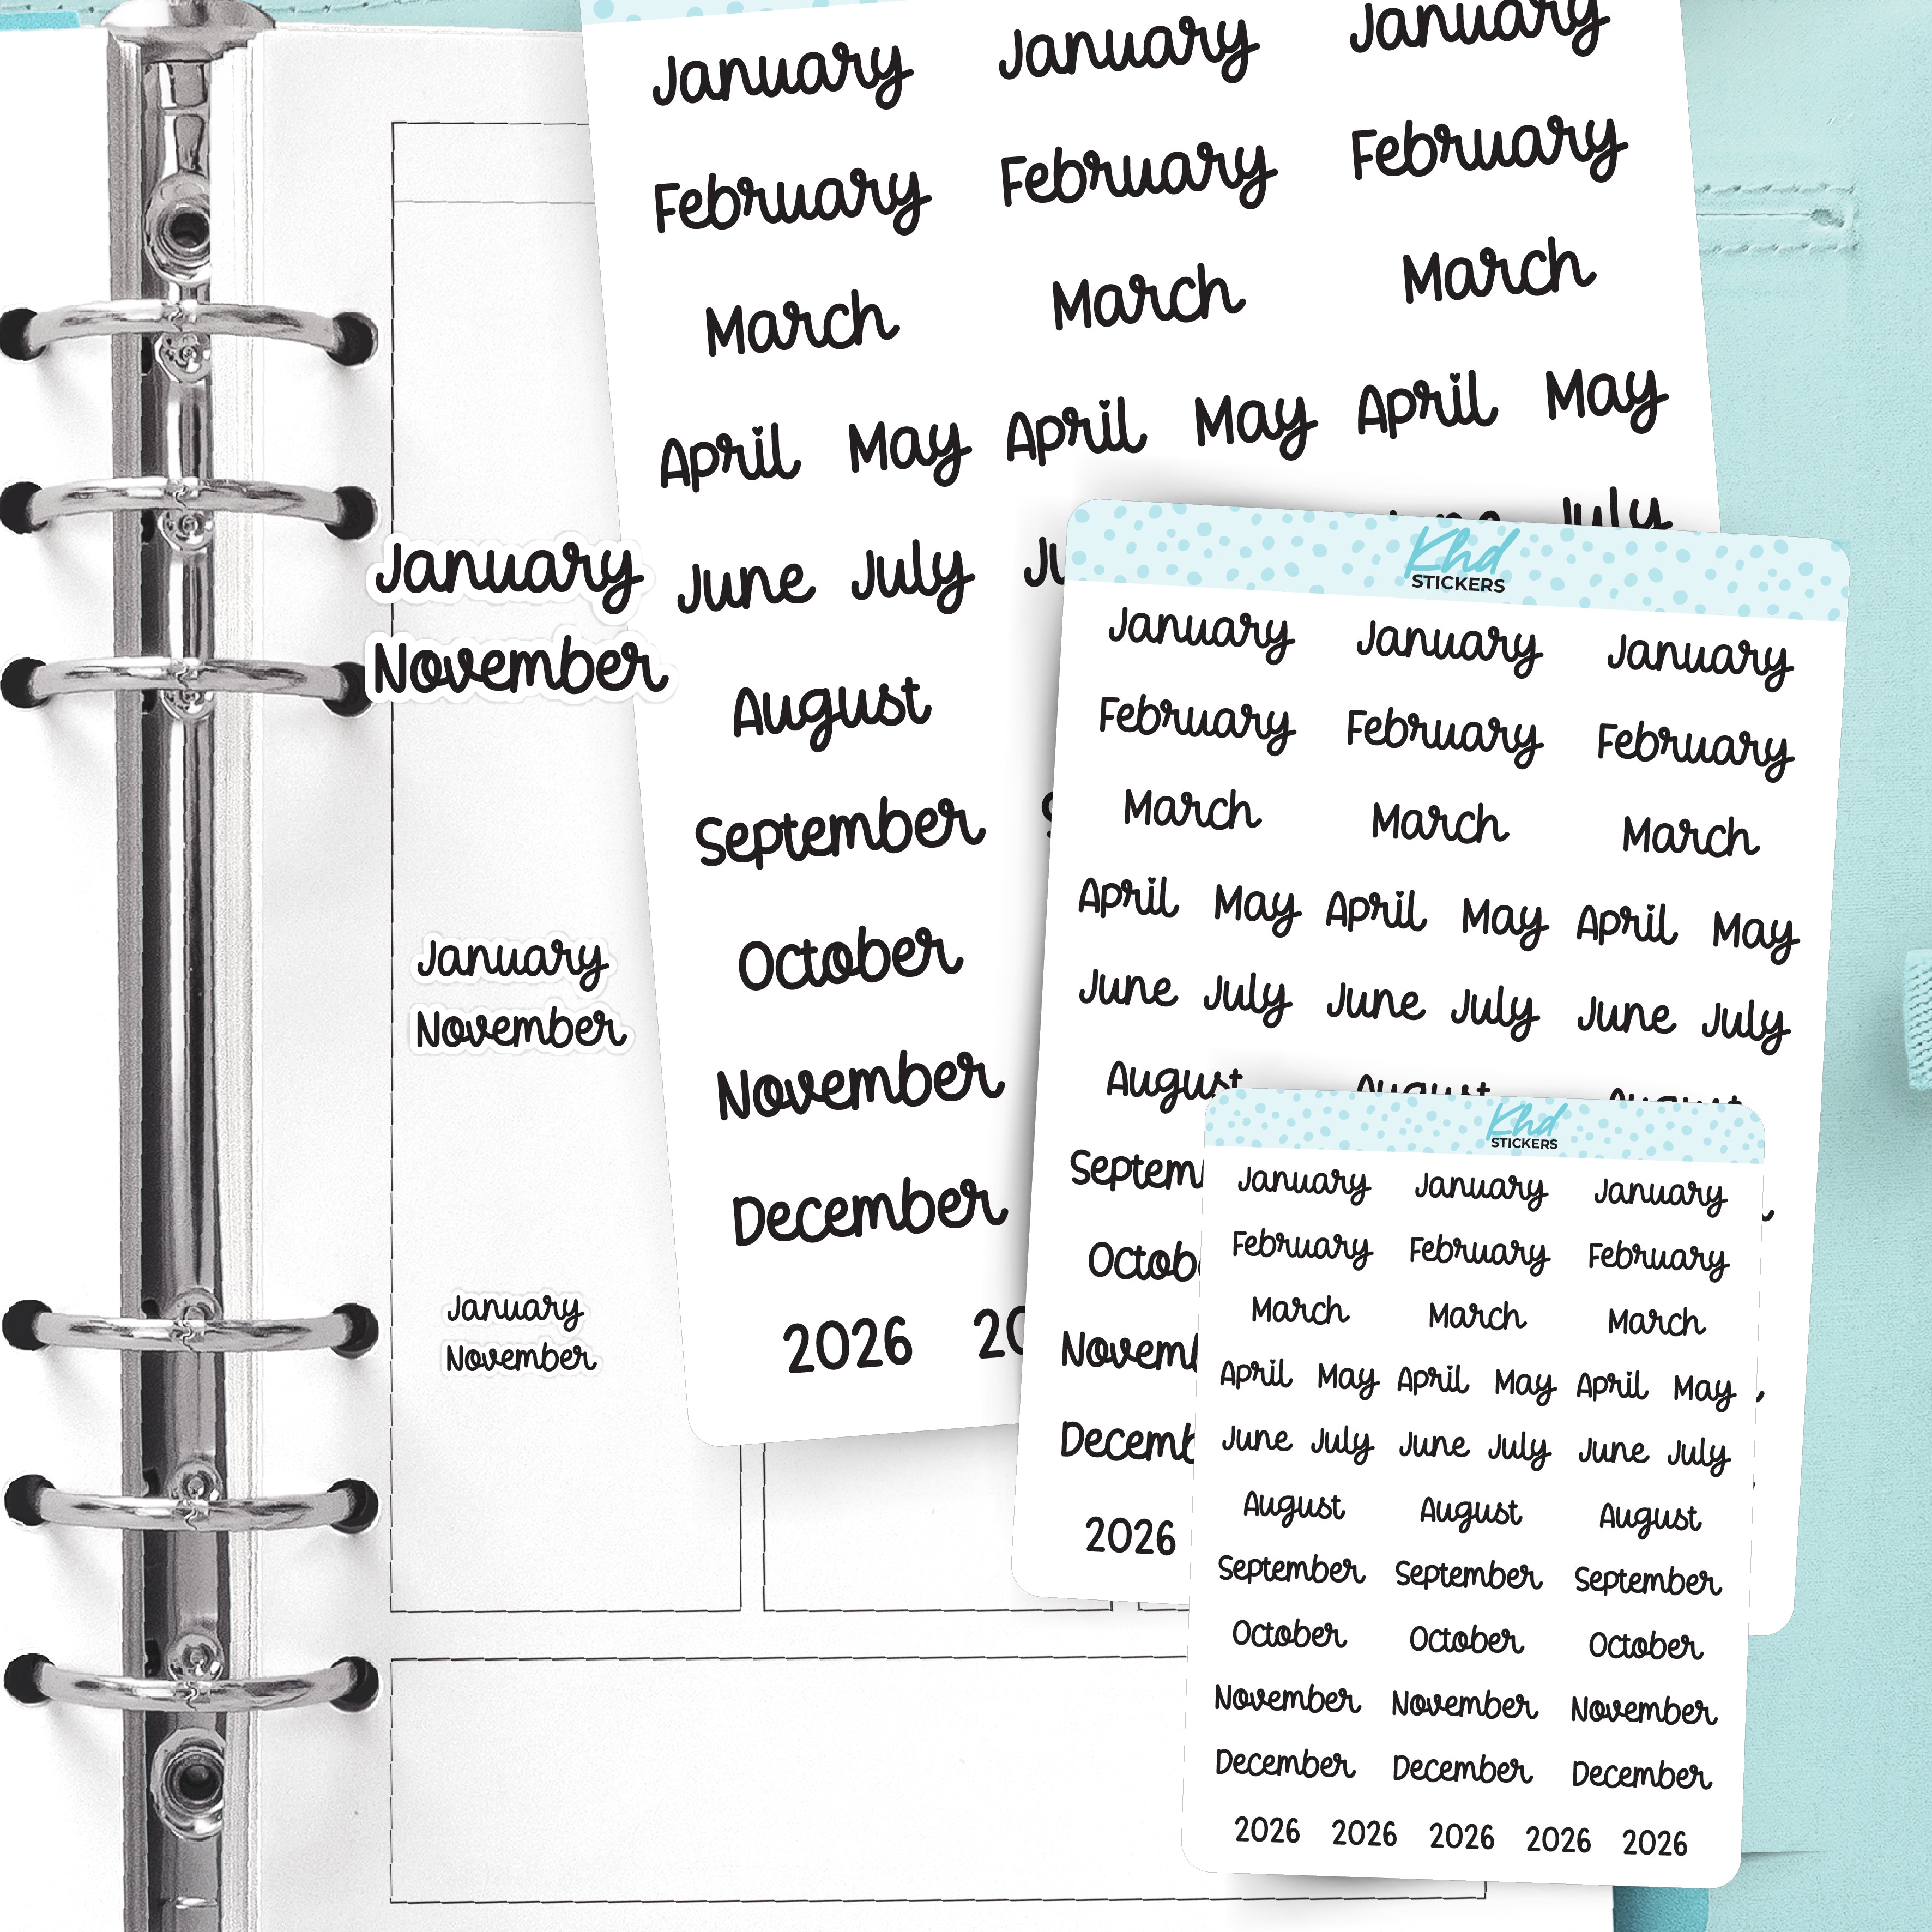 January January January
February February February
March March March
April May April May April May
June July
July
August
September
October
November
December
2026
January
November
January
November
January
November
Khd
STICKERS
January January January
February February February
March March March
April May April May April May
June July June July June July
August August August
2026
Khd
STICKERS
January January January
February February February
March March March
April May April May April May
June July June July June July
August August August
September September September
October October October
November November November
December December December
2026 2026 2026 2026 2026